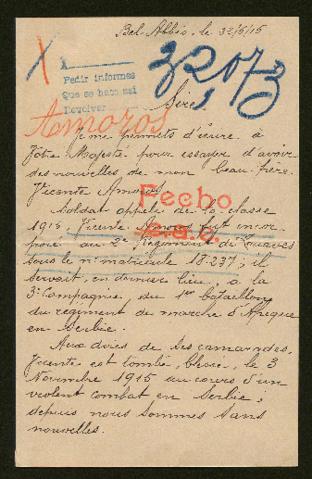 Bel-Abbès, le
X
X
32073
Pedir informes
Que se haga así
Devolver
Sire,
Amoros
Je me permets d'écrire à
Votre Majesté pour essayer d'avoir
des nouvelles de mon beau-frère.
Vicente Amoros
Fecho
Soldat appelé de la classe
1915, Vicente Amoros fut incor-
poré au 2e Régiment de Zouaves
sous le n° matricule 18.237; il
servait, en dernier lieu, à la
3e Compagnie du 1er bataillon
du régiment de marche d'Afrique
en Serbie.
Aux dires de ses camarades,
Vicente est tombé, blessé, le 3
Novembre 1915 au cours d'un
violent combat en Serbie;
depuis nous sommes sans
nouvelles.